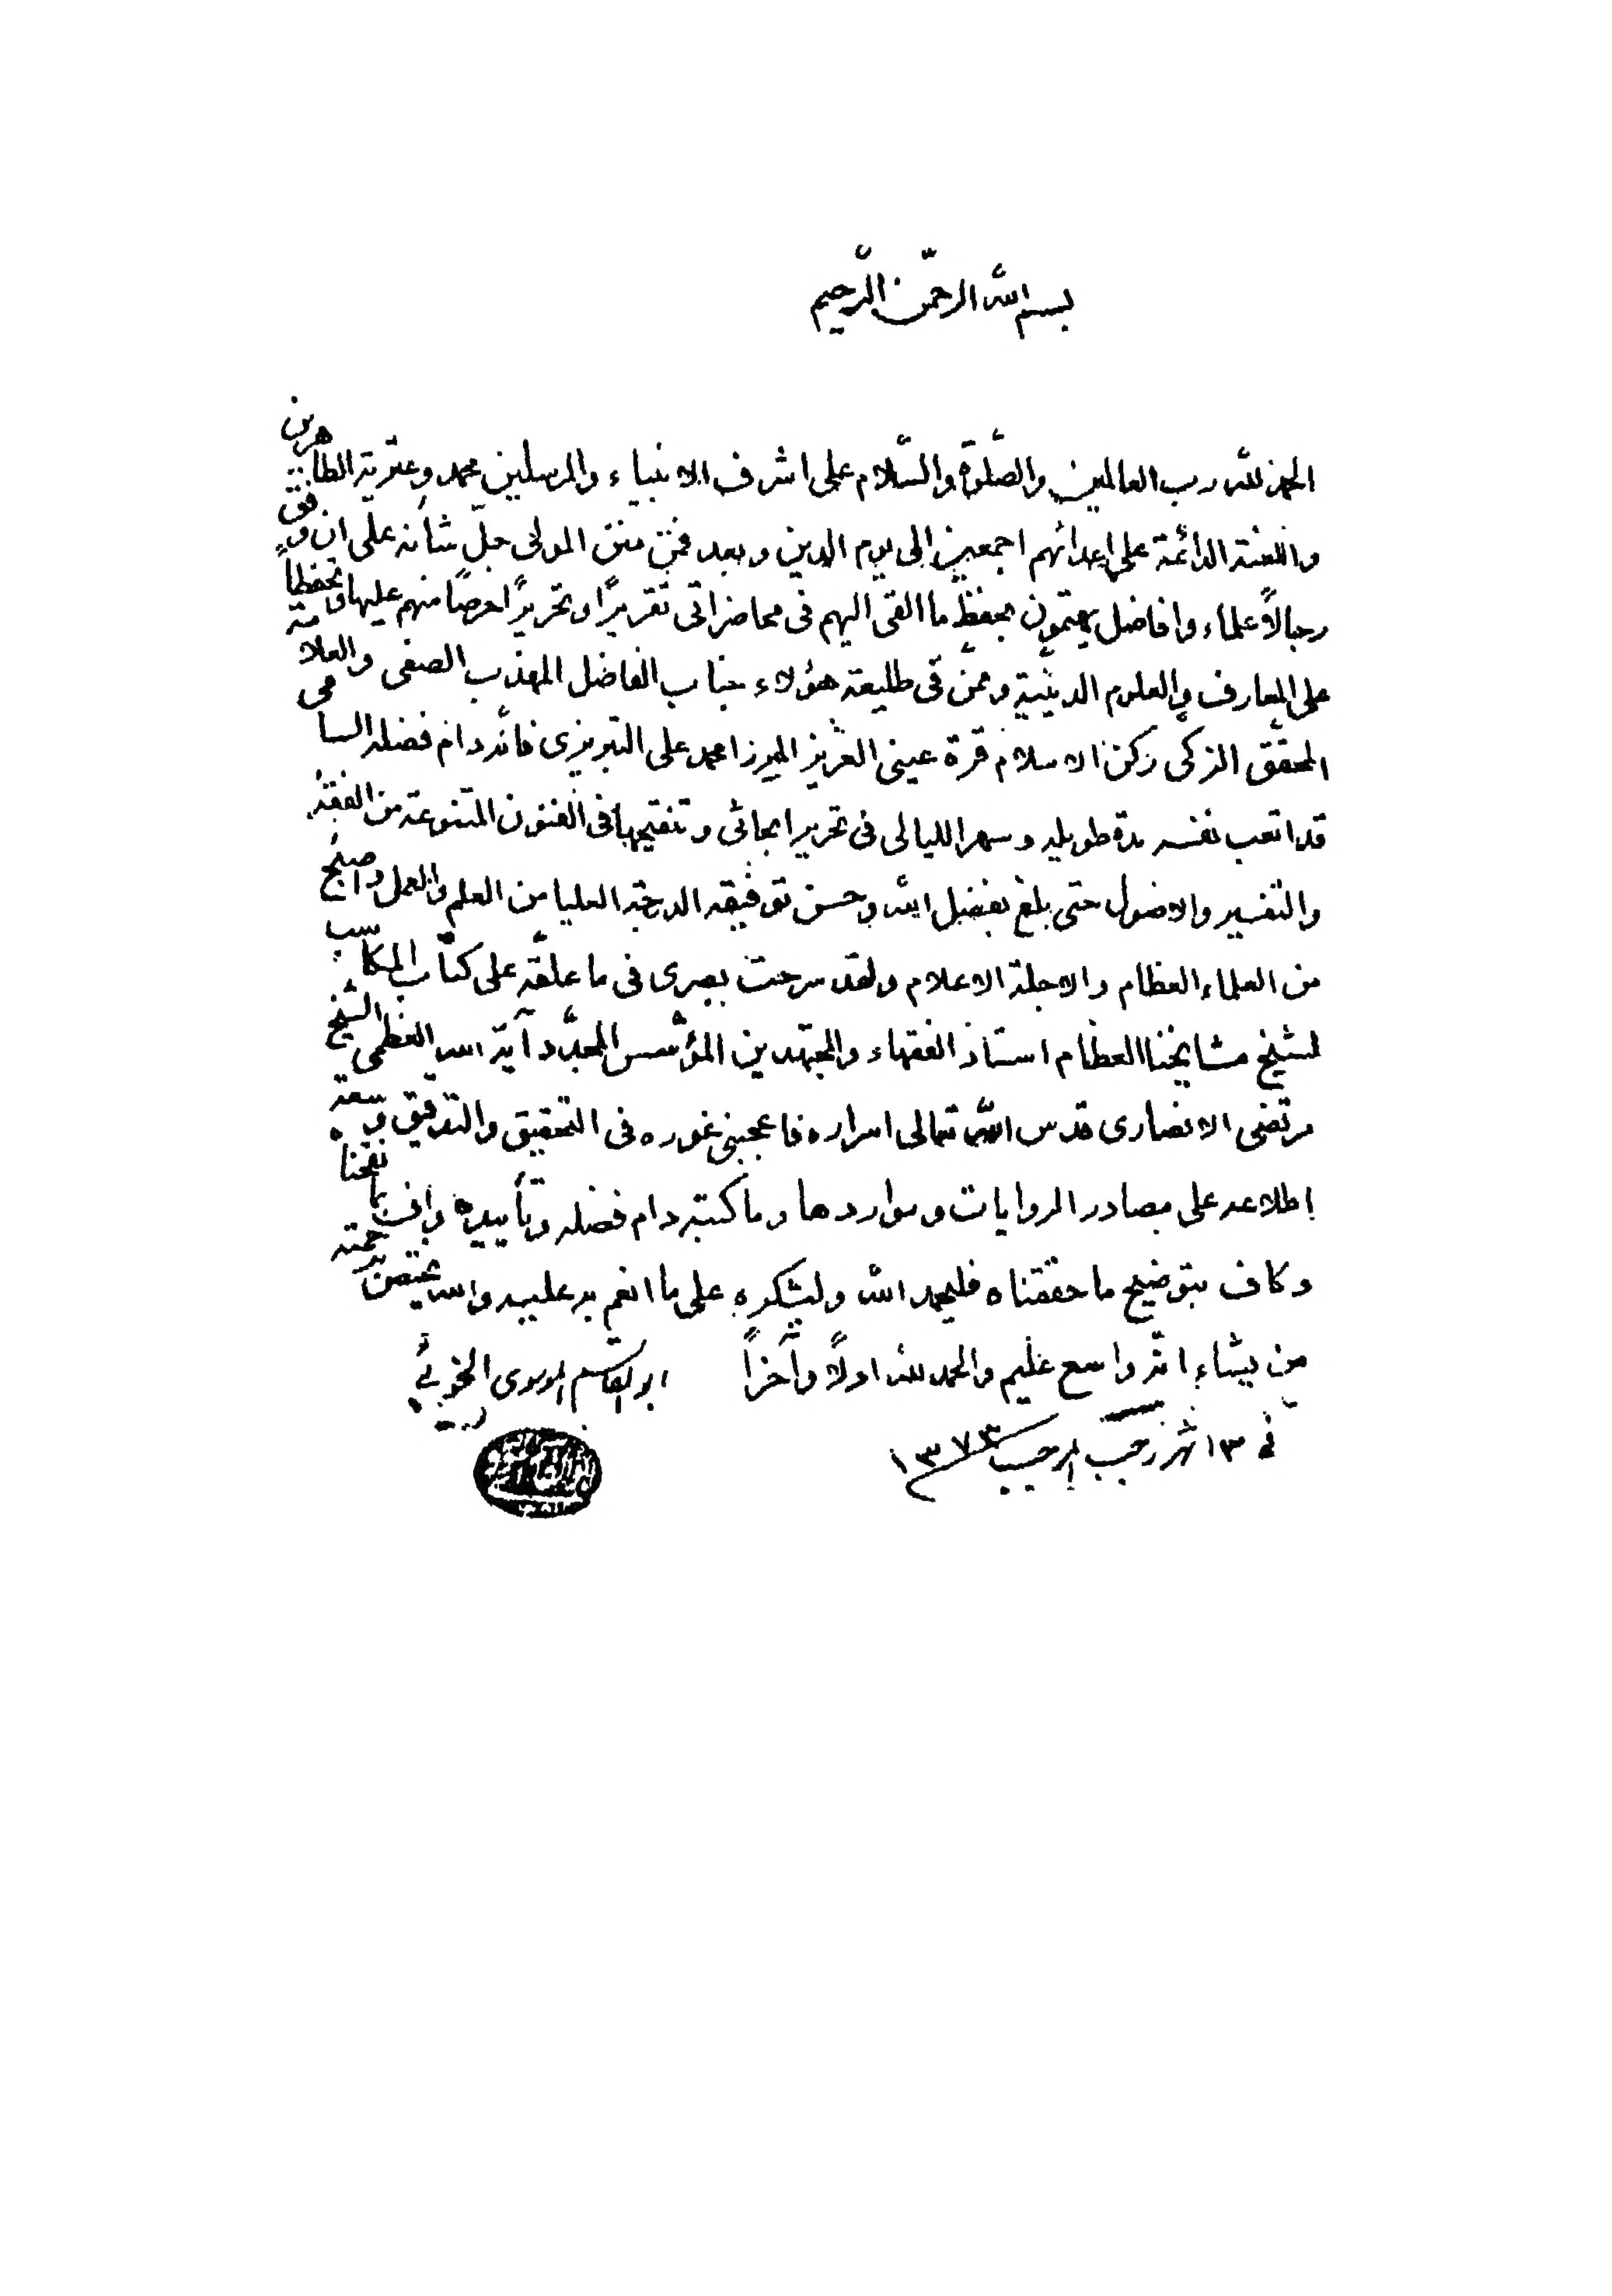 بسم الله الرحمن الرحيم
الحمد لله رب العالمين والصلوة والسّلام على اشرف الانبياء والمرسلين محمد وعترته الطاهرين
واللعنة الدائمة على اعدائهم اجمعين الى يوم الدين وبعد فمن منن المولى جلّ شأنه على ان وفق
رجالاً علماء وافاضل يهتمون بحفظ ما القى اليهم في محاضراتى تقريرًا وتحريرًا حرصًا منهم عليها وتحفظاً
على المعارف والعلوم الدينية وممن في طليعة هؤلاء جناب الفاضل المهذب الصفى والعلامة
المحقق الزكى ركن الاسلام قرة عينى العزيز الميرزا محمد على التبريزى فانّه دام فضله السامى
قد اتعب نفسه مدة طويلة وسهر الليالى فى تحرير ابحاثى وتنقيحها فى الفنون المتنوعة من الفقه
والتفسير والاصول حتى بلغ بفضل الله وحسن توفيقه الدرجة العليا من العلم والعمل واصبح
من العلماء العظام والاجلة الاعلام ولقد سرحت بصرى فى ما علقه على كتاب المكاسب
لشيخ مشايخنا العظام استاذ الفقهاء والمجتهدين المؤسس المجدّد آية الله العظمى الشيخ
مرتضى الانصارى قدس الله تعالى اسراره فاعجبنى غوره فى التحقيق والتدقيق وسعة
اطلاعه على مصادر الروايات ومواردها وما كتبه دام فضله وتأييده واف بما نقحناه
وكاف بتوضيح ما حققناه فليحمد الله وليشكره على ما انعم به عليه والله يختص برحمته
من يشاء انّه واسع عليم والحمد لله اولاً وآخراً ابو القاسم الموسوى الخوئي
في ١٣ شهر رجب المرجب ١٣٧٣